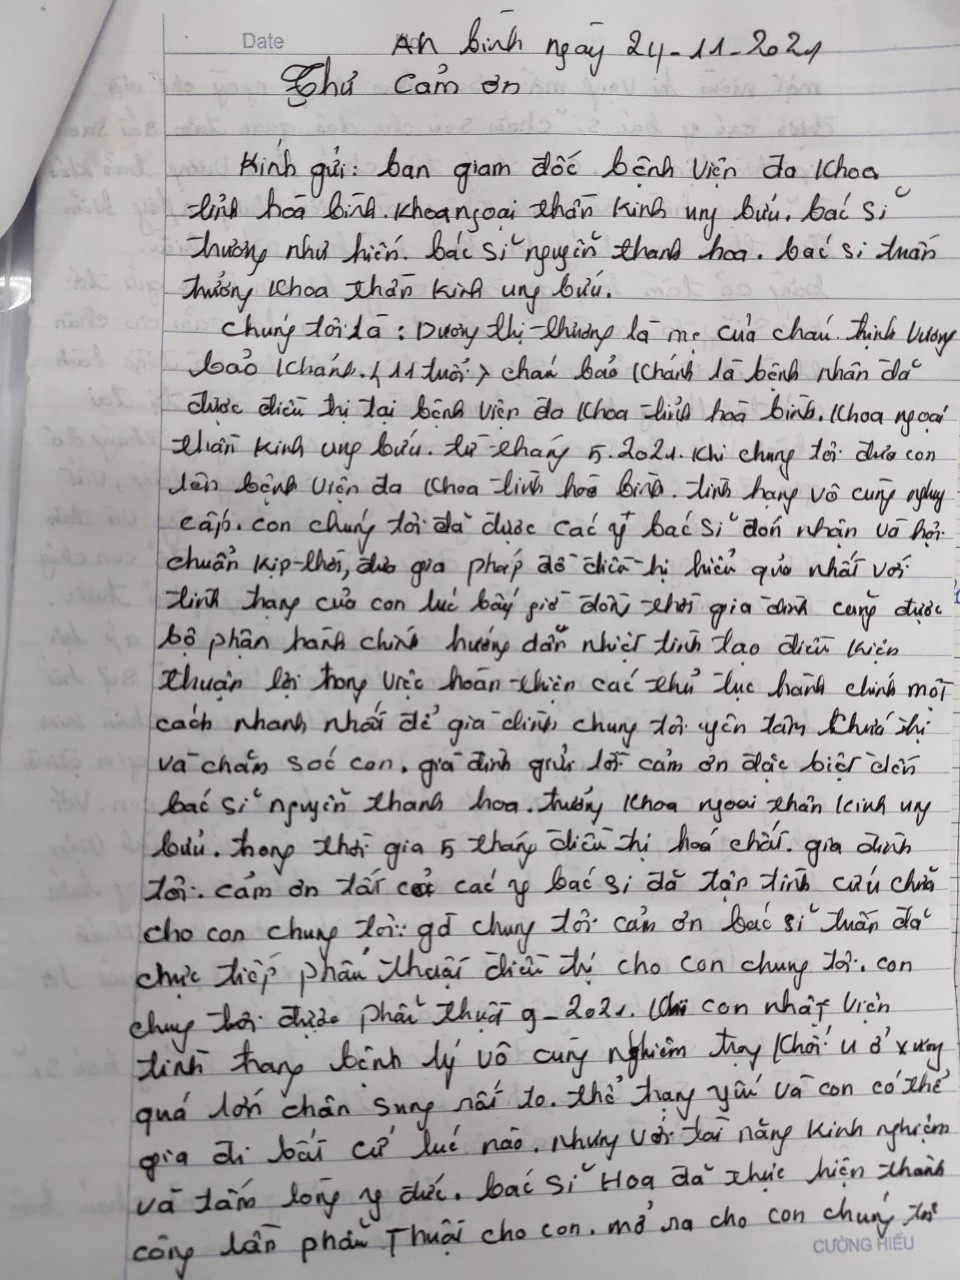 Date
An bình ngày 24-11-2021
Thư cảm ơn
Kính gửi: ban giam đốc bệnh viện đa khoa
tỉnh hoà bình. khoa ngoại thần kinh ung bứu. bác sĩ
thương như hiến. bác sĩ nguyễn thanh hoa. bác sĩ tuấn
trưởng khoa thần kinh ung bứu.
Chúng tôi là: Dương thị thương là mẹ của cháu. thịnh vương
bảo khánh. (11 tuổi) cháu bảo khánh là bệnh nhân đã
được điều thị tại bệnh viện đa khoa tỉnh hoà bình. khoa ngoại
thần kinh ung bứu. từ tháng 5.2021. khi chúng tôi đưa con
lên bệnh viện đa khoa tỉnh hoà bình. tình trạng vô cùng nguy
cấp. con chúng tôi đã được các y bác sĩ đón nhận và hội
chuẩn kịp thời, đưa gia pháp đồ điều thị hiểu quả nhất với
tình trạng của con lúc bấy giờ đồn thời gia đình cũng được
bộ phận hành chính hướng dẫn nhiệt tình tạo điều kiện
thuận lợi trong việc hoàn thiện các thủ tục hành chính một
cách nhanh nhất để gia đình chúng tôi yên tâm chữa thị
và chăm sóc con. gia đình gửi lời cảm ơn đặc biệt đến
bác sĩ nguyễn thanh hoa. trưởng khoa ngoại thần kinh ung
bứu. trong thời gia 5 tháng điều thị hoá chất. gia đình
tôi. cảm ơn tất cả các y bác sĩ đã tận tình cứu chữa
cho con chúng tôi: gđ chúng tôi cảm ơn bác sĩ tuấn đã
chực tiếp phẫu thuật điều thị cho con chúng tôi. con
chúng tôi được phẫu thuật 9-2021. Khi con nhập viện
tình trạng bệnh lý vô cùng nghiêm trọng khối u ở xương
quá lớn chân sưng rất to. thể trạng yếu và con có thể
gia đi bất cứ lúc nào. nhưng với tài năng kinh nghiệm
và tấm lòng y đức. bác sĩ Hoa đã thực hiện thành
công lần phẫu Thuật cho con. mở ra cho con chúng tôi
CƯỜNG HIẾU